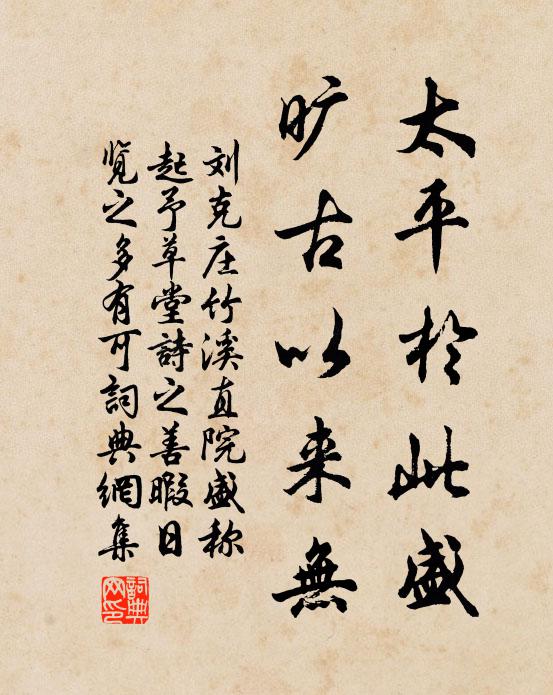 太平於此盛
旷古以来無
刘克庄竹溪直院盛称
起予草堂詩之善暇日
览之多有可词典網集
詞典網印